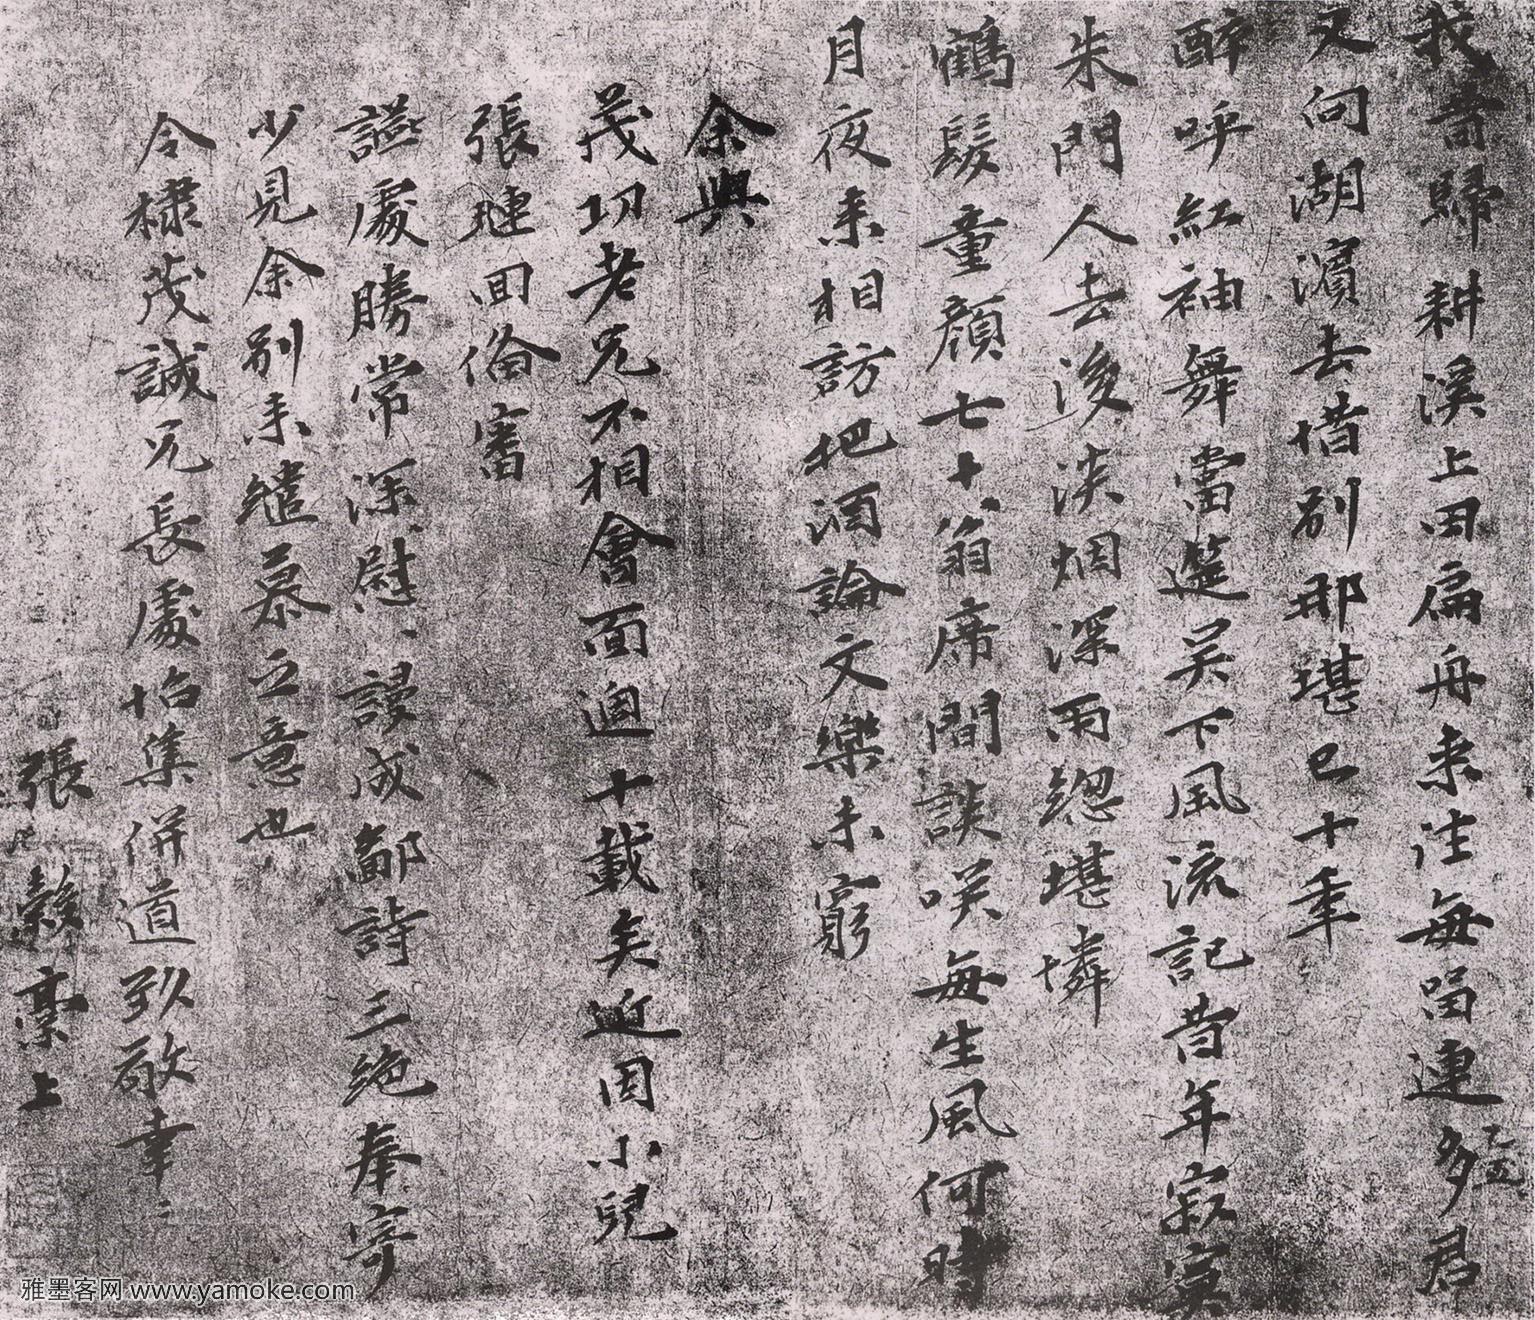 我昔歸耕溪上田扁舟来往每留連多君
又向湖濵去惜别那堪已十年
醉呼紅袖舞當筵吴下風流記昔年寂寞
朱門人去後淡烟深雨緫堪憐
鶴髮童顔七十翁席間談咲每生風何時
月夜来相訪把酒論文樂未窮
余與
茂功老兄不相會面迨十載矣近因小兒
張璉回俻審
謡處勝常深慰謾成鄙詩三絶奉寄
少見余别未繾慕之意也
令棣茂誠兄長處怡集併道弘敬幸〻
張縠稾上
雅墨客网 www.yamoke.com